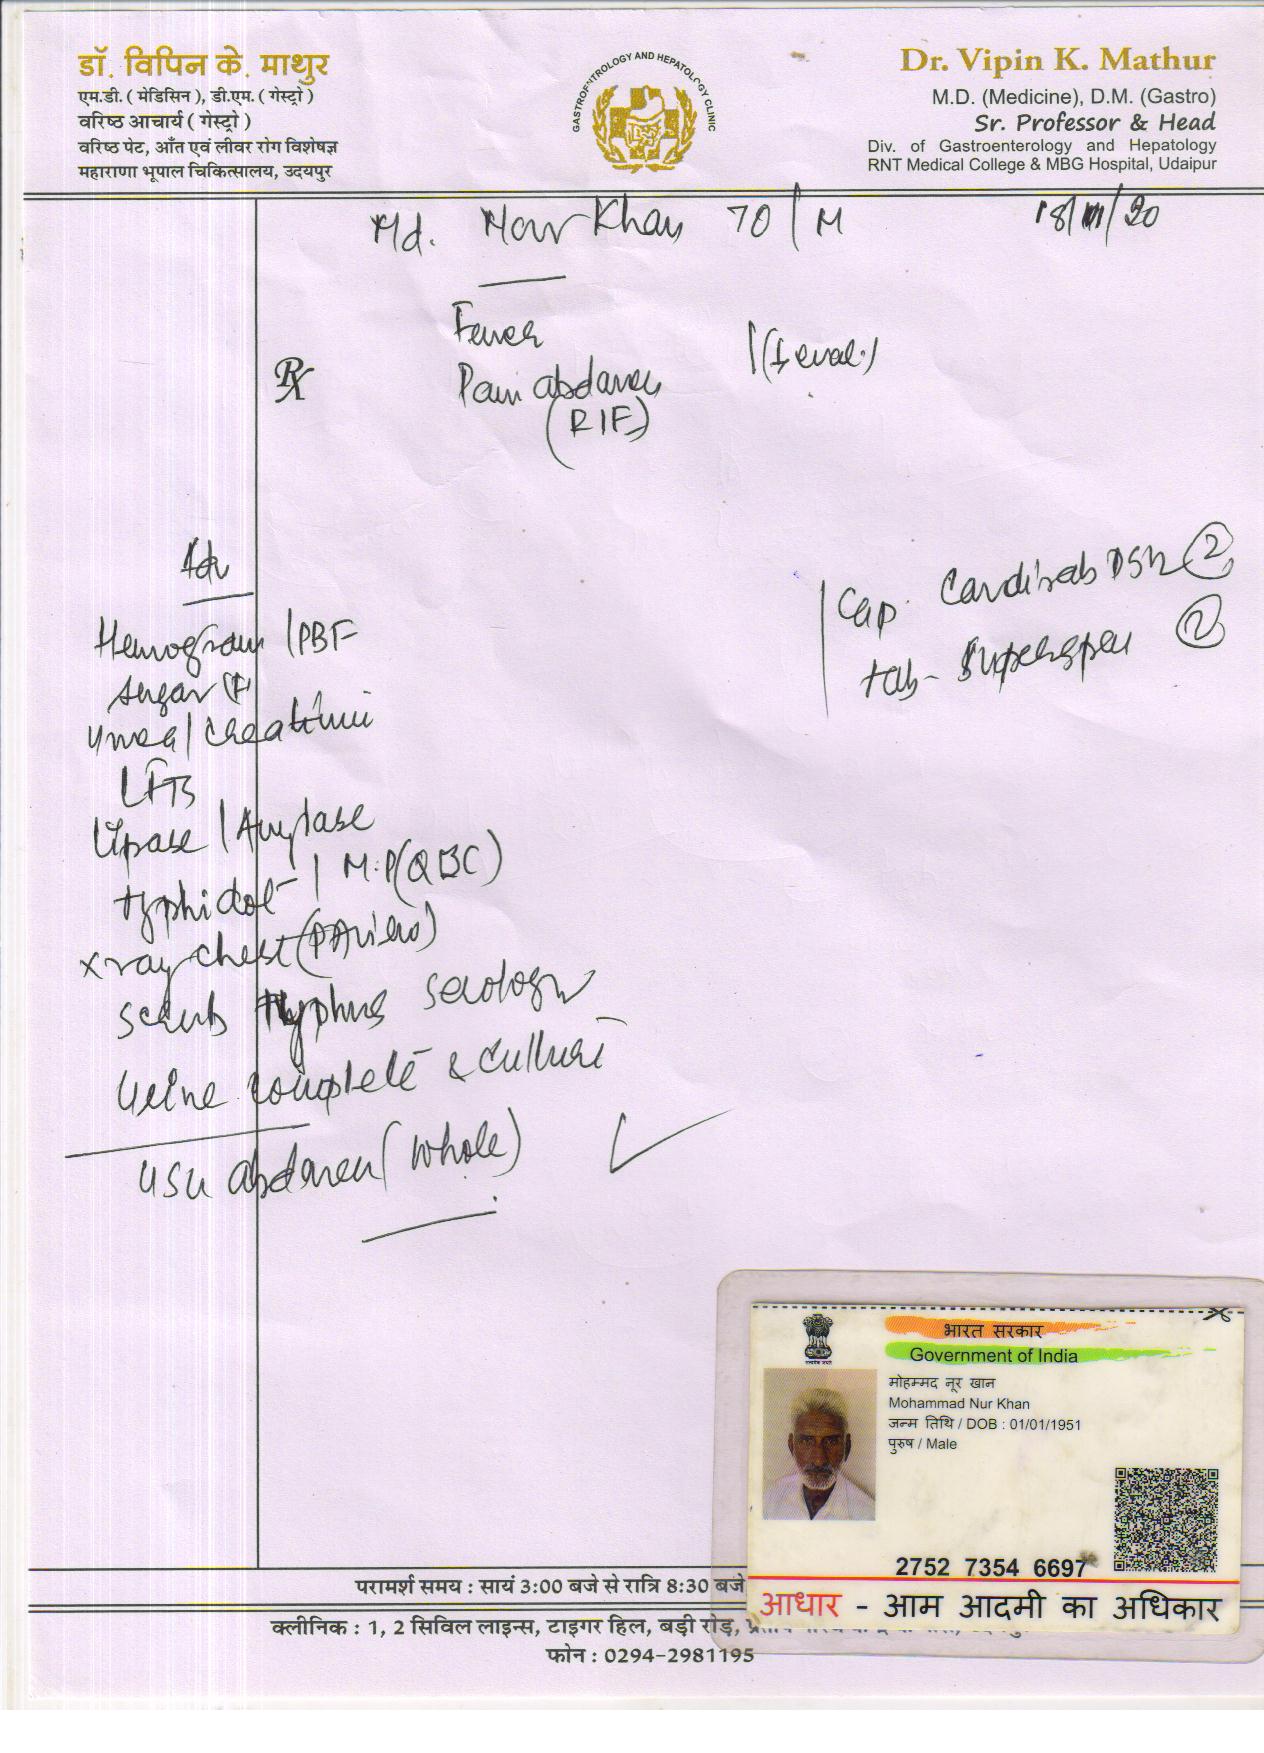 डॉ. विपिन के. माथुर
एम.डी. ( मेडिसिन ), डी.एम. ( गेस्ट्रो )
वरिष्ठ आचार्य ( गेस्ट्रो )
वरिष्ठ पेट, आँत एवं लीवर रोग विशेषज्ञ
महाराणा भूपाल चिकित्सालय, उदयपुर
GASTROENTROLOGY AND HEPATOLOGY CLINIC
Dr. Vipin K. Mathur
M.D. (Medicine), D.M. (Gastro)
Sr. Professor & Head
Div. of Gastroenterology and Hepatology
RNT Medical College & MBG Hospital, Udaipur
Md. Noor Khan 70 / M
Fever
Rx
Pain abdomen
(RIF)
Adv
Cap.
tab-
Hemogram / PBF
Sugar (F)
Urea / Creatinine
LFTs
Lipase / Amylase
typhidot / M.P (QBC)
xray chest (PA view)
Scrub typhus serology
Urine complete & culture
USG abdomen (whole)
भारत सरकार
Government of India
मोहम्मद नूर खान
Mohammad Nur Khan
जन्म तिथि / DOB : 01/01/1951
पुरुष / Male
2752 7354 6697
आधार - आम आदमी का अधिकार
परामर्श समय : सायं 3:00 बजे से रात्रि 8:30 बजे
क्लीनिक : 1, 2 सिविल लाइन्स, टाइगर हिल, बड़ी रोड़,
फोन : 0294-2981195